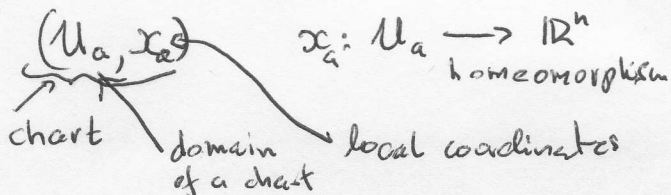 (U_a, x_a) x_a: U_a → ℝⁿ
homeomorphism
chart domain of a chart local coordinates